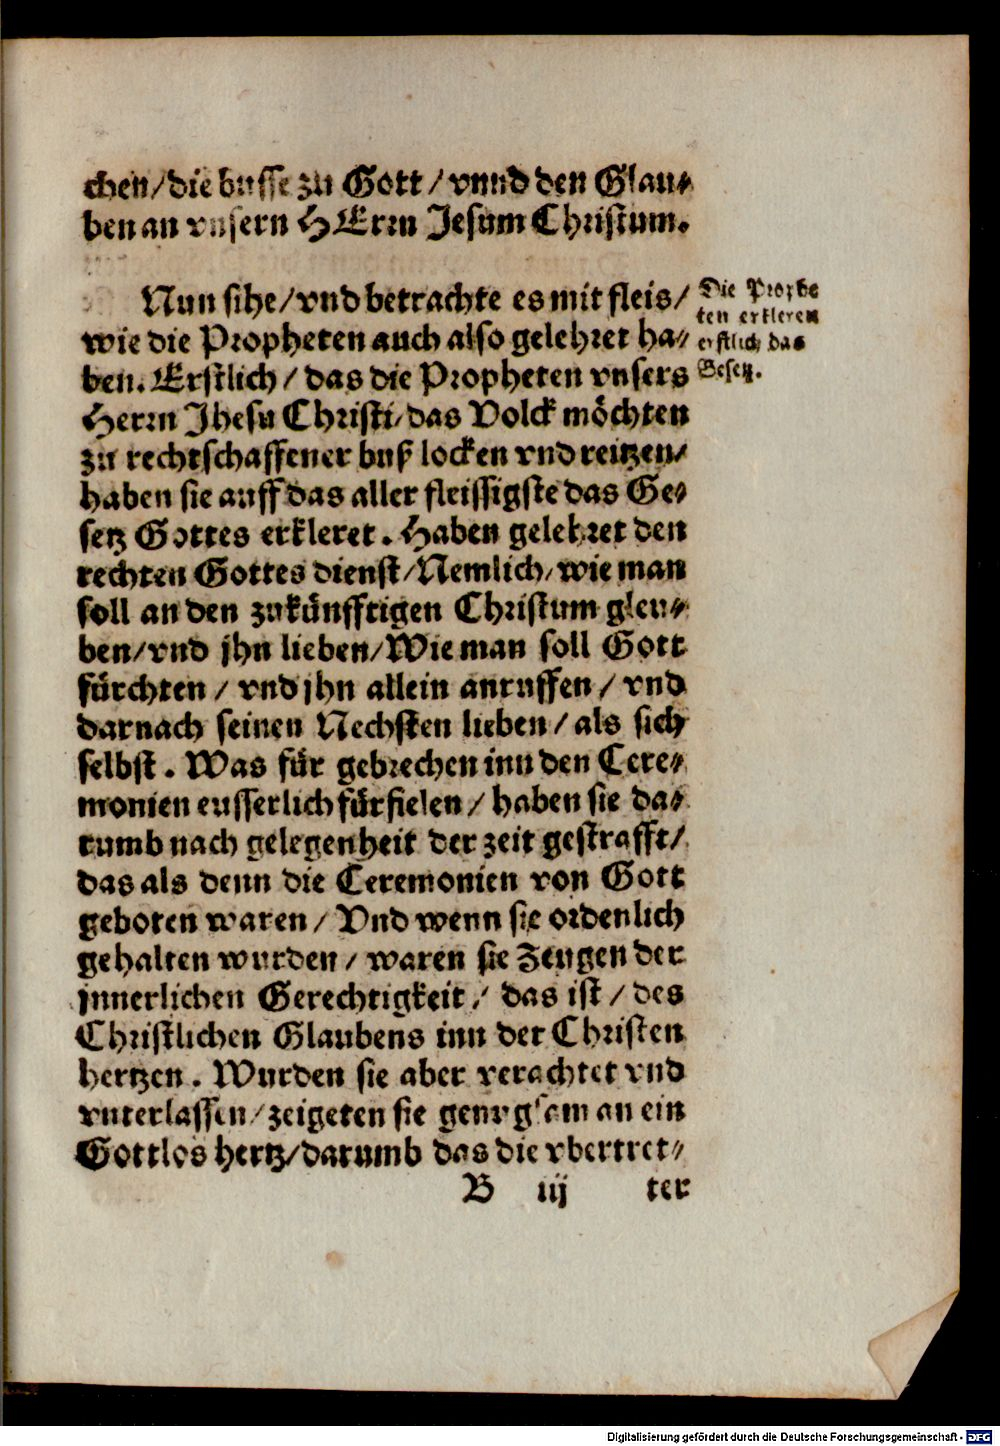 chen/die busse zu Gott/vnnd den Glau-
ben an vnsern HErrn Jesum Christum.
Nun sihe/vnd betrachte es mit fleis/
wie die Propheten auch also gelehret ha-
ben. Erstlich/das die Propheten vnsers
Herrn Jhesu Christi/das Volck möchten
zu rechtschaffener buß locken vnd reitzen/
haben sie auff das aller fleissigste das Ge-
setz Gottes erkleret. Haben gelehret den
rechten Gottes dienst/Nemlich/wie man
soll an den zukünfftigen Christum gleu-
ben/vnd jhn lieben/Wie man soll Gott
fürchten/vnd jhn allein anruffen/vnd
darnach seinen Nechsten lieben/als sich
selbst. Was für gebrechen inn den Cere-
monien eusserlich fürfielen/haben sie da-
rumb nach gelegenheit der zeit gestrafft/
das als denn die Ceremonien von Gott
geboten waren/Vnd wenn sie ordenlich
gehalten wurden/waren sie Zeugen der
jnnerlichen Gerechtigkeit/das ist/des
Christlichen Glaubens inn der Christen
hertzen. Wurden sie aber verachtet vnd
vnterlassen/zeigeten sie genugsam an ein
Gottlos hertz/darumb das die vbertret-
B iij ter
Die Prophe
ten erkleren
erstlich das
Gesetz.
Digitalisierung gefördert durch die Deutsche Forschungsgemeinschaft - DFG